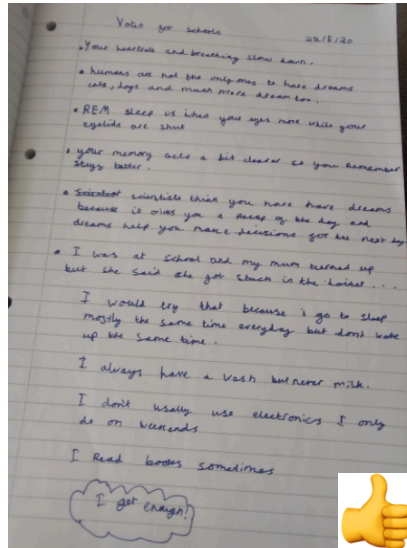 Votes for schools
20/5/20
• Your heartrate and breathing slow down.
• humans are not the only ones to have dreams
cats, dogs and much more dream too.
• REM sleep is when your eyes move while your
eyelids are shut
• your memory gets a bit clearer so you remember
better.
• scientists think you have have dreams
because it gives you a recap of the day and
dreams help you make decisions for the next day.
• I was at school and my mum turned up
but she said she got stuck in the toilet...
I would try that because i go to sleep
mostly the same time everyday but dont wake
up the same time.
I always have a wash but never milk.
I don't usally use electronics I only
do on weekends
I Read books sometimes
I get enough!